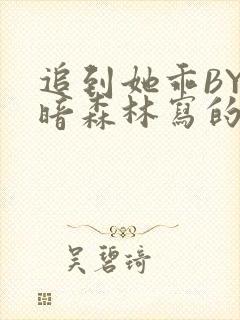 追到她乖BY
暗森林寫的
吴碧琦